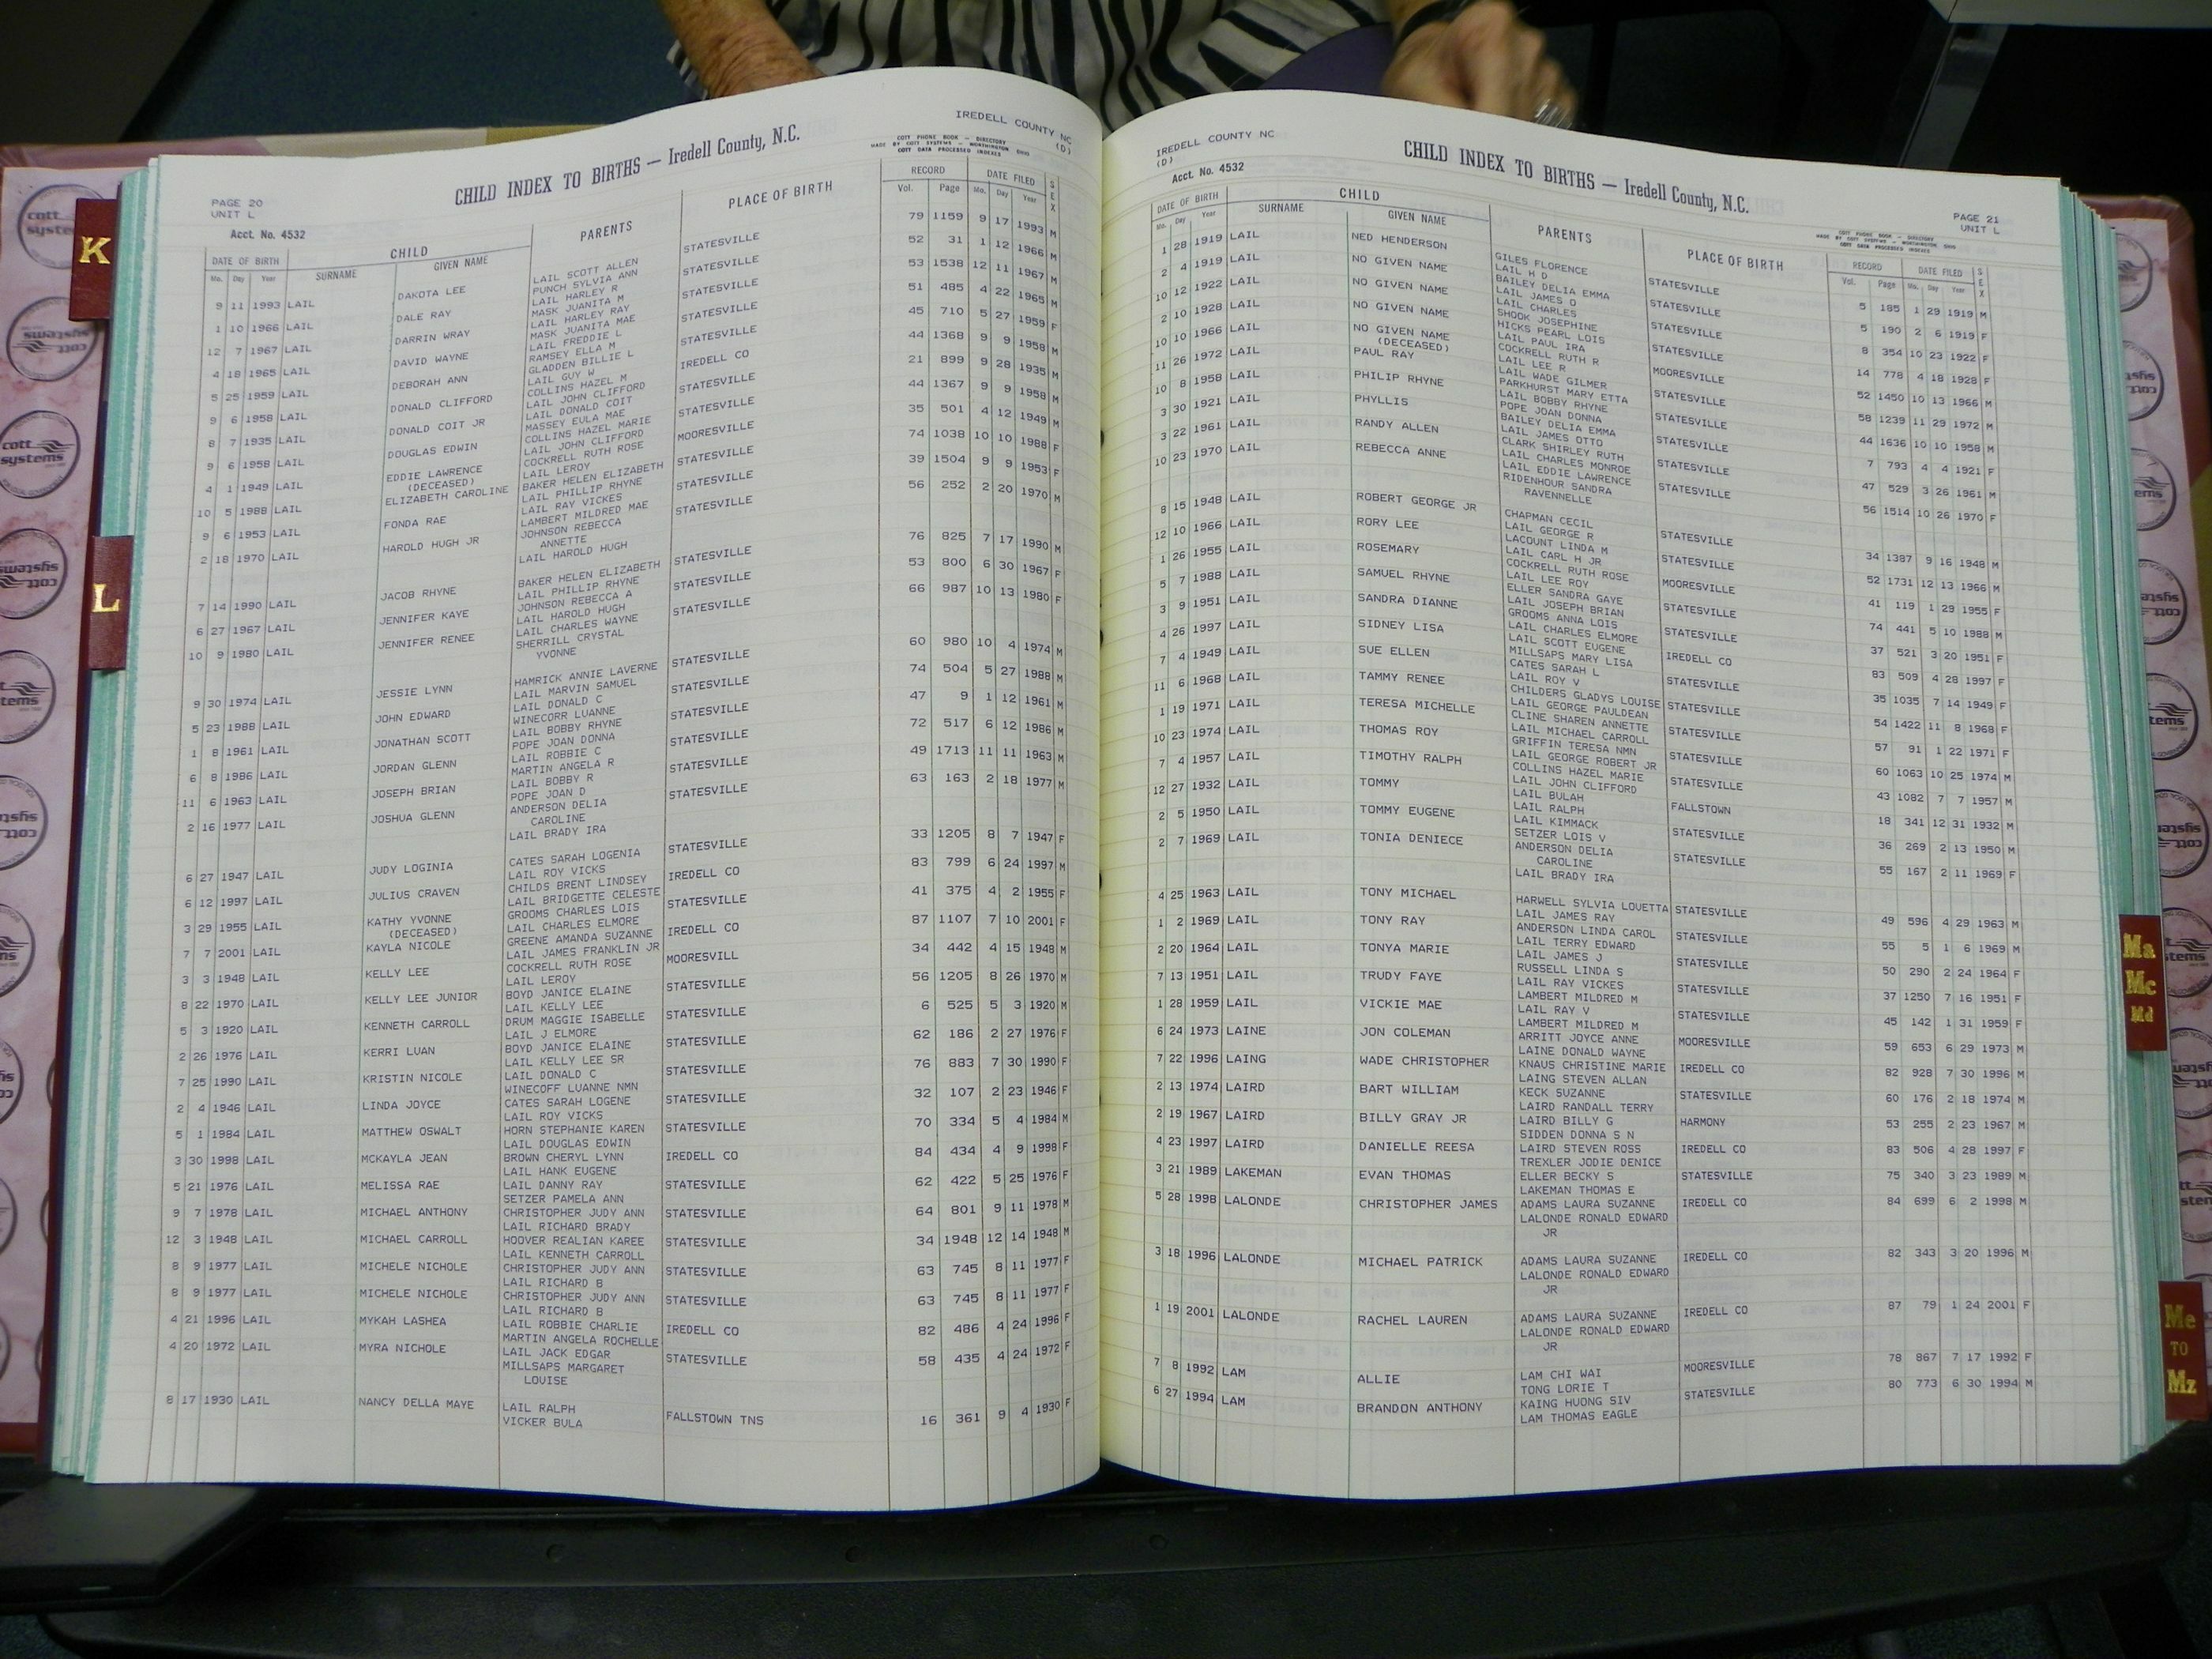 IREDELL COUNTY NC
(D)
CHILD INDEX TO BIRTHS — Iredell County, N.C.
COTT PHONE BOOK — DIRECTORY
MADE BY COTT SYSTEMS — WORTHINGTON, OHIO
COTT DATA PROCESSED INDEXES
PAGE 20
UNIT L
Acct. No. 4532
DATE OF BIRTH CHILD PARENTS PLACE OF BIRTH RECORD DATE FILED SEX
Mo. Day Year SURNAME GIVEN NAME Vol. Page Mo. Day Year
9 11 1993 LAIL DAKOTA LEE LAIL SCOTT ALLEN STATESVILLE 79 1159 9 17 1993 M
PUNCH SYLVIA ANN
1 10 1966 LAIL DALE RAY LAIL HARLEY R STATESVILLE 52 31 1 12 1966 M
MASK JUANITA M
12 7 1967 LAIL DARRIN WRAY LAIL HARLEY RAY STATESVILLE 53 1538 12 11 1967 M
MASK JUANITA MAE
4 18 1965 LAIL DAVID WAYNE LAIL FREDDIE L STATESVILLE 51 485 4 22 1965 M
RAMSEY ELLA M
5 25 1959 LAIL DEBORAH ANN GLADDEN BILLIE L STATESVILLE 45 710 5 27 1959 F
LAIL GUY W
9 6 1958 LAIL DONALD CLIFFORD COLLINS HAZEL M IREDELL CO 44 1368 9 9 1958 M
LAIL JOHN CLIFFORD
8 7 1935 LAIL DONALD COIT JR LAIL DONALD COIT STATESVILLE 21 899 9 28 1935 M
MASSEY EULA MAE
9 6 1958 LAIL DOUGLAS EDWIN COLLINS HAZEL MARIE STATESVILLE 44 1367 9 9 1958 M
LAIL JOHN CLIFFORD
4 1 1949 LAIL EDDIE LAWRENCE COCKRELL RUTH ROSE MOORESVILLE 35 501 4 12 1949 M
(DECEASED) LAIL LEROY
10 5 1988 LAIL ELIZABETH CAROLINE BAKER HELEN ELIZABETH STATESVILLE 74 1038 10 10 1988 F
LAIL PHILLIP RHYNE
9 6 1953 LAIL FONDA RAE LAIL RAY VICKES STATESVILLE 39 1504 9 9 1953 F
LAMBERT MILDRED MAE
2 18 1970 LAIL HAROLD HUGH JR JOHNSON REBECCA STATESVILLE 56 252 2 20 1970 M
ANNETTE
LAIL HAROLD HUGH
7 14 1990 LAIL JACOB RHYNE BAKER HELEN ELIZABETH STATESVILLE 76 825 7 17 1990 M
LAIL PHILLIP RHYNE
6 27 1967 LAIL JENNIFER KAYE JOHNSON REBECCA A STATESVILLE 53 800 6 30 1967 F
LAIL HAROLD HUGH
10 9 1980 LAIL JENNIFER RENEE LAIL CHARLES WAYNE STATESVILLE 66 987 10 13 1980 F
SHERRILL CRYSTAL
YVONNE
9 30 1974 LAIL JESSIE LYNN HAMRICK ANNIE LAVERNE STATESVILLE 60 980 10 4 1974 M
LAIL MARVIN SAMUEL
5 23 1988 LAIL JOHN EDWARD LAIL DONALD C STATESVILLE 74 504 5 27 1988 M
WINECORR LUANNE
1 8 1961 LAIL JONATHAN SCOTT LAIL BOBBY RHYNE STATESVILLE 47 9 1 12 1961 M
POPE JOAN DONNA
6 8 1986 LAIL JORDAN GLENN LAIL ROBBIE C STATESVILLE 72 517 6 12 1986 M
MARTIN ANGELA R
11 6 1963 LAIL JOSEPH BRIAN LAIL BOBBY R STATESVILLE 49 1713 11 11 1963 M
POPE JOAN D
2 16 1977 LAIL JOSHUA GLENN ANDERSON DELIA STATESVILLE 63 163 2 18 1977 M
CAROLINE
LAIL BRADY IRA
6 27 1947 LAIL JUDY LOGINIA CATES SARAH LOGENIA STATESVILLE 33 1205 8 7 1947 F
LAIL ROY VICKS
6 12 1997 LAIL JULIUS CRAVEN CHILDS BRENT LINDSEY IREDELL CO 83 799 6 24 1997 M
LAIL BRIDGETTE CELESTE
3 29 1955 LAIL KATHY YVONNE GROOMS CHARLES LOIS STATESVILLE 41 375 4 2 1955 F
(DECEASED) LAIL CHARLES ELMORE
7 7 2001 LAIL KAYLA NICOLE GREENE AMANDA SUZANNE IREDELL CO 87 1107 7 10 2001 F
LAIL JAMES FRANKLIN JR
3 3 1948 LAIL KELLY LEE COCKRELL RUTH ROSE MOORESVILL 34 442 4 15 1948 M
LAIL LEROY
8 22 1970 LAIL KELLY LEE JUNIOR BOYD JANICE ELAINE STATESVILLE 56 1205 8 26 1970 M
LAIL KELLY LEE
5 3 1920 LAIL KENNETH CARROLL DRUM MAGGIE ISABELLE STATESVILLE 6 525 5 3 1920 M
LAIL J ELMORE
2 26 1976 LAIL KERRI LUAN BOYD JANICE ELAINE STATESVILLE 62 186 2 27 1976 F
LAIL KELLY LEE SR
7 25 1990 LAIL KRISTIN NICOLE LAIL DONALD C STATESVILLE 76 883 7 30 1990 F
WINECOFF LUANNE NMN
2 4 1946 LAIL LINDA JOYCE CATES SARAH LOGENE STATESVILLE 32 107 2 23 1946 F
LAIL ROY VICKS
5 1 1984 LAIL MATTHEW OSWALT HORN STEPHANIE KAREN STATESVILLE 70 334 5 4 1984 M
LAIL DOUGLAS EDWIN
3 30 1998 LAIL MCKAYLA JEAN BROWN CHERYL LYNN IREDELL CO 84 434 4 9 1998 F
LAIL HANK EUGENE
5 21 1976 LAIL MELISSA RAE LAIL DANNY RAY STATESVILLE 62 422 5 25 1976 F
SETZER PAMELA ANN
9 7 1978 LAIL MICHAEL ANTHONY CHRISTOPHER JUDY ANN STATESVILLE 64 801 9 11 1978 M
LAIL RICHARD BRADY
12 3 1948 LAIL MICHAEL CARROLL HOOVER REALIAN KAREE STATESVILLE 34 1948 12 14 1948 M
LAIL KENNETH CARROLL
8 9 1977 LAIL MICHELE NICHOLE CHRISTOPHER JUDY ANN STATESVILLE 63 745 8 11 1977 F
LAIL RICHARD B
8 9 1977 LAIL MICHELE NICHOLE CHRISTOPHER JUDY ANN STATESVILLE 63 745 8 11 1977 F
LAIL RICHARD B
4 21 1996 LAIL MYKAH LASHEA LAIL ROBBIE CHARLIE IREDELL CO 82 486 4 24 1996 F
MARTIN ANGELA ROCHELLE
4 20 1972 LAIL MYRA NICHOLE LAIL JACK EDGAR STATESVILLE 58 435 4 24 1972 F
MILLSAPS MARGARET
LOUISE
8 17 1930 LAIL NANCY DELLA MAYE LAIL RALPH FALLSTOWN TNS 16 361 9 4 1930 F
VICKER BULA
IREDELL COUNTY NC
(D)
Acct. No. 4532
CHILD INDEX TO BIRTHS — Iredell County, N.C.
PAGE 21
UNIT L
COTT PHONE BOOK — DIRECTORY
MADE BY COTT SYSTEMS — WORTHINGTON, OHIO
COTT DATA PROCESSED INDEXES
DATE OF BIRTH CHILD PARENTS PLACE OF BIRTH RECORD DATE FILED SEX
Mo. Day Year SURNAME GIVEN NAME Vol. Page Mo. Day Year
1 28 1919 LAIL NED HENDERSON GILES FLORENCE STATESVILLE 5 185 1 29 1919 M
LAIL H D
2 4 1919 LAIL NO GIVEN NAME BAILEY DELIA EMMA STATESVILLE 5 190 2 6 1919 F
LAIL JAMES O
10 12 1922 LAIL NO GIVEN NAME LAIL CHARLES STATESVILLE 8 354 10 23 1922 F
SHOOK JOSEPHINE
2 10 1928 LAIL NO GIVEN NAME HICKS PEARL LOIS STATESVILLE 14 778 4 18 1928 F
LAIL PAUL IRA
10 10 1966 LAIL NO GIVEN NAME COCKRELL RUTH R MOORESVILLE 52 1450 10 13 1966 M
(DECEASED) LAIL LEE R
11 26 1972 LAIL PAUL RAY LAIL WADE GILMER STATESVILLE 58 1239 11 29 1972 M
PARKHURST MARY ETTA
10 8 1958 LAIL PHILIP RHYNE LAIL BOBBY RHYNE STATESVILLE 44 1636 10 10 1958 M
POPE JOAN DONNA
3 30 1921 LAIL PHYLLIS BAILEY DELIA EMMA STATESVILLE 7 793 4 4 1921 F
LAIL JAMES OTTO
3 22 1961 LAIL RANDY ALLEN CLARK SHIRLEY RUTH STATESVILLE 47 529 3 26 1961 M
LAIL CHARLES MONROE
10 23 1970 LAIL REBECCA ANNE LAIL EDDIE LAWRENCE STATESVILLE 56 1514 10 26 1970 F
RIDENHOUR SANDRA
RAVENNELLE
8 15 1948 LAIL ROBERT GEORGE JR CHAPMAN CECIL STATESVILLE 34 1387 9 16 1948 M
LAIL GEORGE R
12 10 1966 LAIL RORY LEE LACOUNT LINDA M MOORESVILLE 52 1731 12 13 1966 M
LAIL CARL H JR
1 26 1955 LAIL ROSEMARY COCKRELL RUTH ROSE STATESVILLE 41 119 1 29 1955 F
LAIL LEE ROY
5 7 1988 LAIL SAMUEL RHYNE ELLER SANDRA GAYE STATESVILLE 74 441 5 10 1988 M
LAIL JOSEPH BRIAN
3 9 1951 LAIL SANDRA DIANNE GROOMS ANNA LOIS IREDELL CO 37 521 3 20 1951 F
LAIL CHARLES ELMORE
4 26 1997 LAIL SIDNEY LISA LAIL SCOTT EUGENE STATESVILLE 83 509 4 28 1997 F
MILLSAPS MARY LISA
7 4 1949 LAIL SUE ELLEN CATES SARAH L STATESVILLE 35 1035 7 14 1949 F
LAIL ROY V
11 6 1968 LAIL TAMMY RENEE CHILDERS GLADYS LOUISE STATESVILLE 54 1422 11 8 1968 F
LAIL GEORGE PAULDEAN
1 19 1971 LAIL TERESA MICHELLE CLINE SHAREN ANNETTE STATESVILLE 57 91 1 22 1971 F
LAIL MICHAEL CARROLL
10 23 1974 LAIL THOMAS ROY GRIFFIN TERESA NMN STATESVILLE 60 1063 10 25 1974 M
LAIL GEORGE ROBERT JR
7 4 1957 LAIL TIMOTHY RALPH COLLINS HAZEL MARIE STATESVILLE 43 1082 7 7 1957 M
LAIL JOHN CLIFFORD
12 27 1932 LAIL TOMMY LAIL BULAH FALLSTOWN 18 341 12 31 1932 M
LAIL RALPH
2 5 1950 LAIL TOMMY EUGENE LAIL KIMMACK STATESVILLE 36 269 2 13 1950 M
SETZER LOIS V
2 7 1969 LAIL TONIA DENIECE ANDERSON DELIA STATESVILLE 55 167 2 11 1969 F
CAROLINE
LAIL BRADY IRA
4 25 1963 LAIL TONY MICHAEL HARWELL SYLVIA LOUETTA STATESVILLE 49 596 4 29 1963 M
LAIL JAMES RAY
1 2 1969 LAIL TONY RAY ANDERSON LINDA CAROL STATESVILLE 55 5 1 6 1969 M
LAIL TERRY EDWARD
2 20 1964 LAIL TONYA MARIE LAIL JAMES J STATESVILLE 50 290 2 24 1964 F
RUSSELL LINDA S
7 13 1951 LAIL TRUDY FAYE LAIL RAY VICKES STATESVILLE 37 1250 7 16 1951 F
LAMBERT MILDRED M
1 28 1959 LAIL VICKIE MAE LAIL RAY V STATESVILLE 45 142 1 31 1959 F
LAMBERT MILDRED M
6 24 1973 LAINE JON COLEMAN ARRITT JOYCE ANNE MOORESVILLE 59 653 6 29 1973 M
LAINE DONALD WAYNE
7 22 1996 LAING WADE CHRISTOPHER KNAUS CHRISTINE MARIE IREDELL CO 82 928 7 30 1996 M
LAING STEVEN ALLAN
2 13 1974 LAIRD BART WILLIAM KECK SUZANNE STATESVILLE 60 176 2 18 1974 M
LAIRD RANDALL TERRY
2 19 1967 LAIRD BILLY GRAY JR LAIRD BILLY G HARMONY 53 255 2 23 1967 M
SIDDEN DONNA S N
4 23 1997 LAIRD DANIELLE REESA LAIRD STEVEN ROSS IREDELL CO 83 506 4 28 1997 F
TREXLER JODIE DENICE
3 21 1989 LAKEMAN EVAN THOMAS ELLER BECKY S STATESVILLE 75 340 3 23 1989 M
LAKEMAN THOMAS E
5 28 1998 LALONDE CHRISTOPHER JAMES ADAMS LAURA SUZANNE IREDELL CO 84 699 6 2 1998 M
LALONDE RONALD EDWARD
JR
3 18 1996 LALONDE MICHAEL PATRICK ADAMS LAURA SUZANNE IREDELL CO 82 343 3 20 1996 M
LALONDE RONALD EDWARD
JR
1 19 2001 LALONDE RACHEL LAUREN ADAMS LAURA SUZANNE IREDELL CO 87 79 1 24 2001 F
LALONDE RONALD EDWARD
JR
7 8 1992 LAM ALLIE LAM CHI WAI MOORESVILLE 78 867 7 17 1992 F
TONG LORIE T
6 27 1994 LAM BRANDON ANTHONY KAING HUONG SIV STATESVILLE 80 773 6 30 1994 M
LAM THOMAS EAGLE
K
L
Ma
Mc
Md
Me
TO
Mz
cott
systems